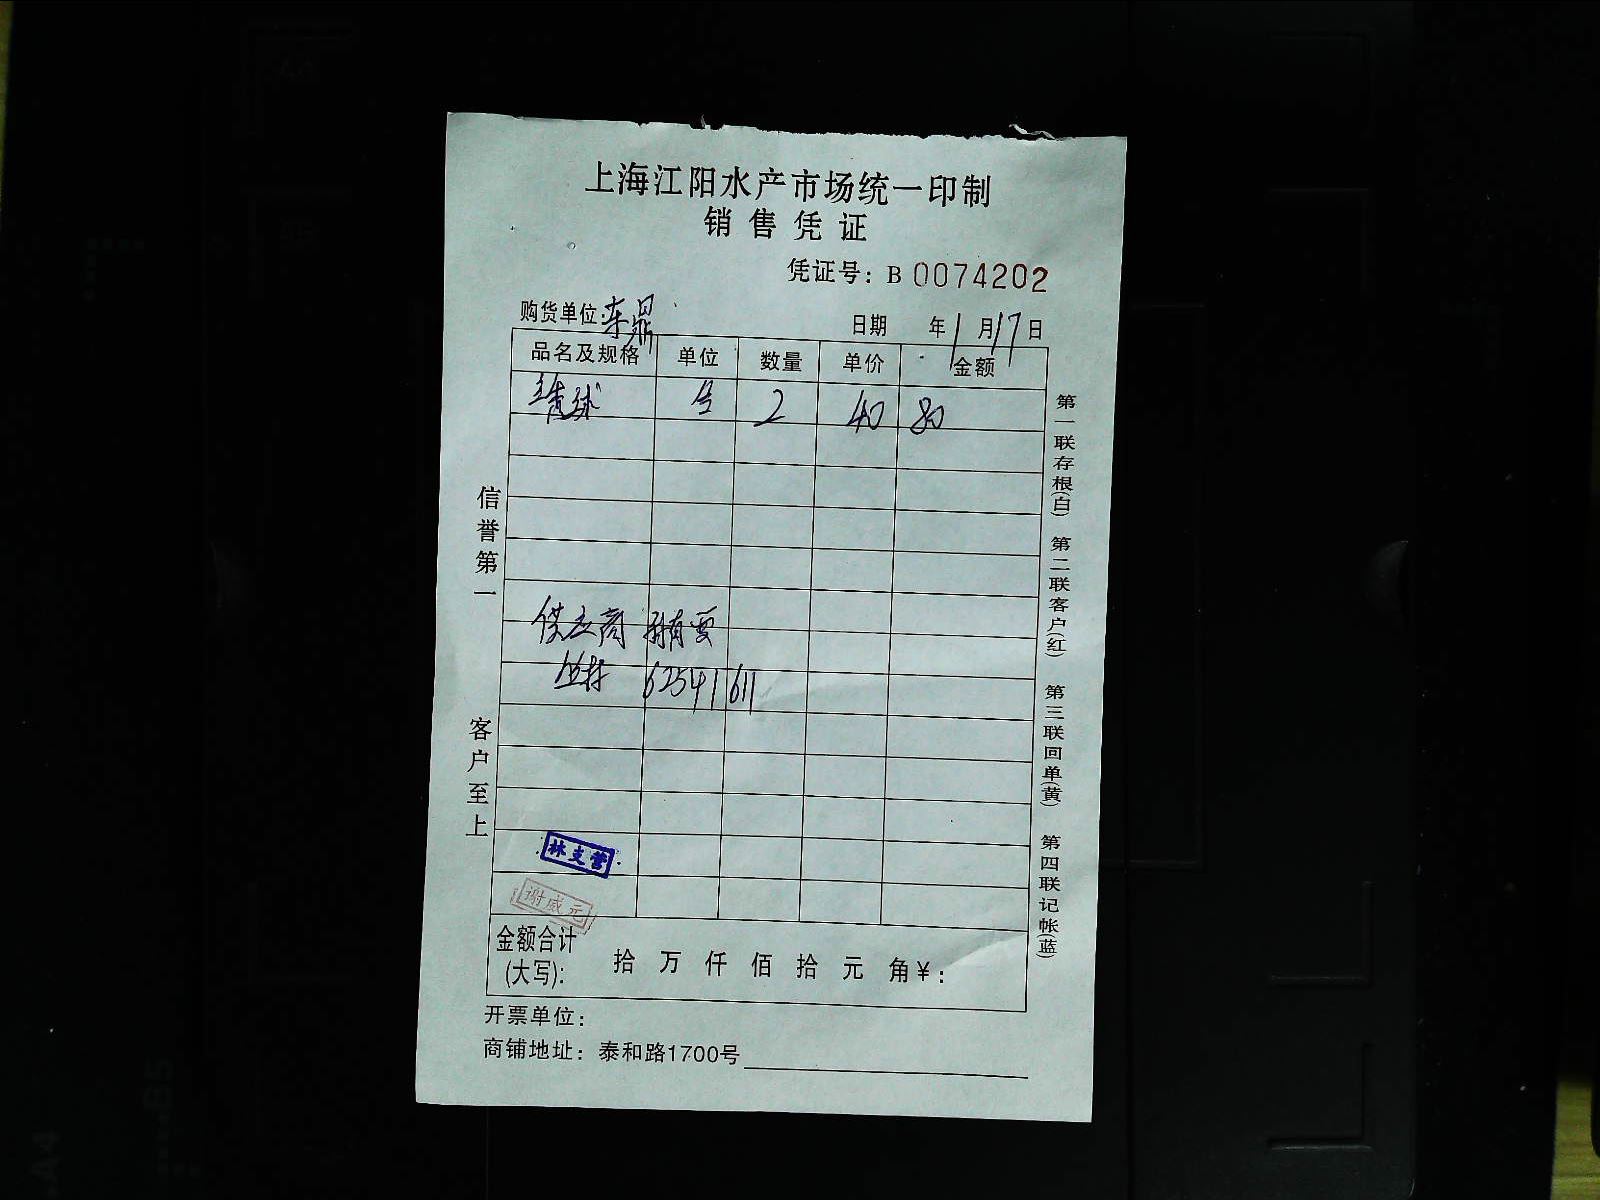 上海江阳水产市场统一印制
销售凭证
凭证号：B 0074202
购货单位：东鼎 日期 年 1 月 17 日
品名及规格 单位 数量 单价 金额
2 40 80
供应商
62541611
林支营
谢威元
金额合计(大写)： 拾 万 仟 佰 拾 元 角 ¥：
开票单位：
商铺地址：泰和路1700号
信誉第一 客户至上
第一联存根(白) 第二联客户(红) 第三联回单(黄) 第四联记帐(蓝)